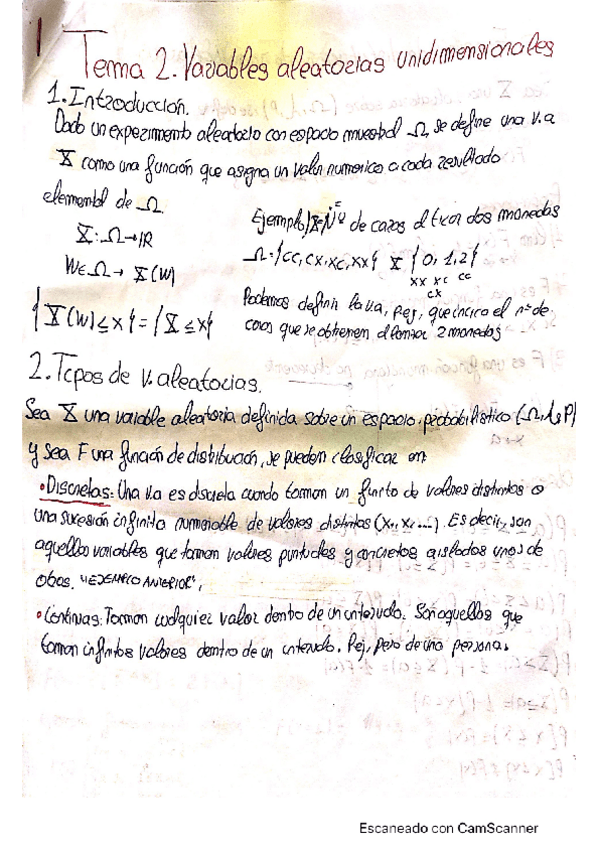 1 Tema 2. Variables aleatorias unidimensionales
1. Introducción.
Dado un experimento aleatorio con espacio muestral Ω, se define una v.a
X como una función que asigna un valor numerico a cada resultado
elemental de Ω.
X: Ω→IR
W∈Ω → X(W)
{X(W) ≤ x} = {X ≤ x}
Ejemplo/ X=Nº de caras al tirar dos monedas
Ω={CC, CX, XC, XX} X {0, 1, 2}
XX XC CC
CX
Podemos definir la v.a, p.ej, que mida el nº de
caras que se obtienen al lanzar 2 monedas
2. Tipos de v. aleatorias.
Sea X una variable aleatoria definida sobre un espacio probabilístico (Ω, A, P)
y sea F una función de distribución, se pueden clasificar en
• Discretas: Una v.a es discreta cuando toman un finito de valores distintos o
una sucesión infinita numerable de valores distintos (X1, X2 ....). Es decir, son
aquellas variables que toman valores puntuales y concretos aislados unos de
otros. "EJEMPLO ANTERIOR".
• Continuas: Toman cualquier valor dentro de un intervalo. Son aquellos que
toman infinitos valores dentro de un intervalo. P.ej, peso de una persona.
Escaneado con CamScanner